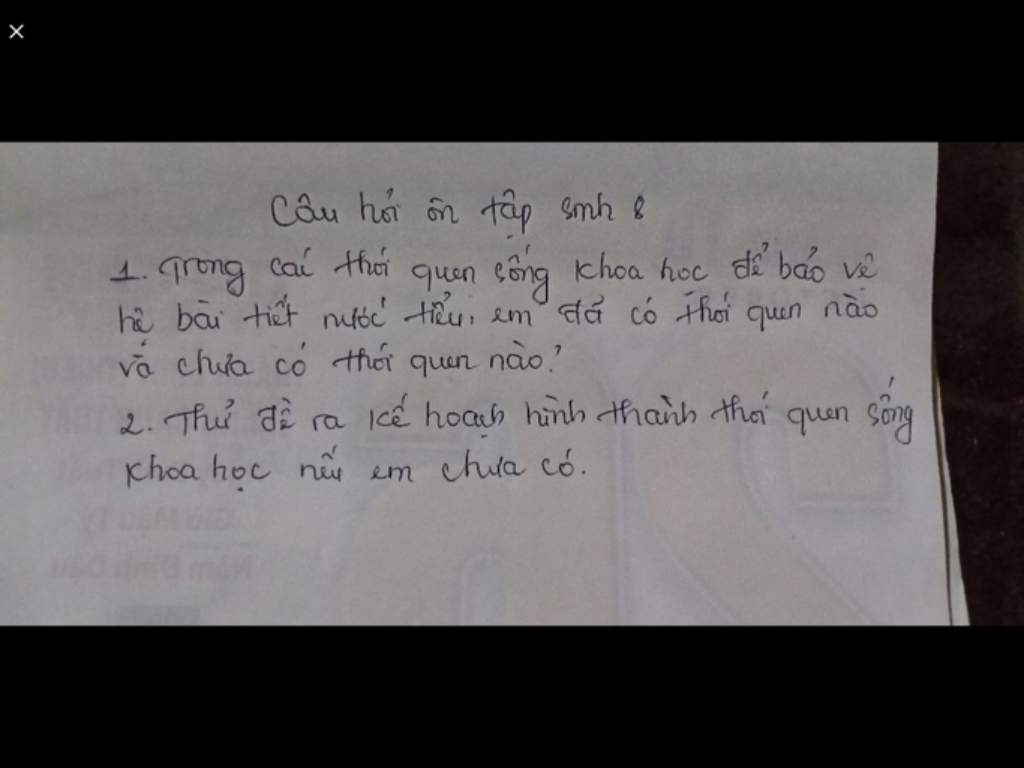 Câu hỏi ôn tập sinh 8
1. Trong các thói quen sống khoa học để bảo vệ
hệ bài tiết nước tiểu, em đã có thói quen nào
và chưa có thói quen nào?
2. Thử đề ra kế hoạch hình thành thói quen sống
khoa học nếu em chưa có.